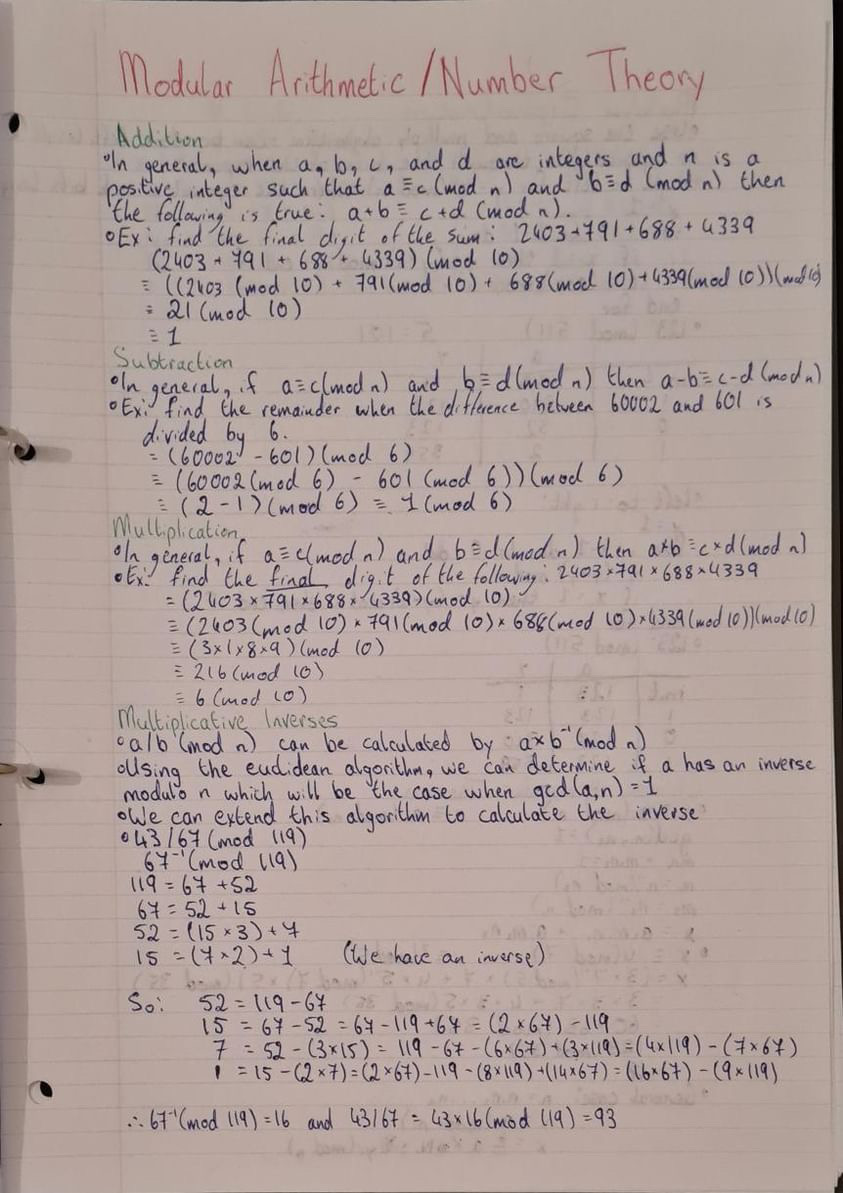 Modular Arithmetic / Number Theory
Addition
°In general, when a, b, c, and d are integers and n is a
positive integer such that a ≡ c (mod n) and b ≡ d (mod n) then
the following is true: a+b ≡ c+d (mod n).
°Ex: find the final digit of the sum: 2403+791+688+4339
(2403 + 791 + 688 + 4339) (mod 10)
≡ ((2403 (mod 10) + 791(mod 10) + 688(mod 10)+4339(mod 10))(mod 10)
≡ 21 (mod 10)
≡ 1
Subtraction
°In general, if a≡c(mod n) and b≡d(mod n) then a-b≡c-d(mod n)
°Ex: find the remainder when the difference between 60002 and 601 is
divided by 6.
= (60002 - 601)(mod 6)
≡ (60002(mod 6) - 601 (mod 6))(mod 6)
≡ (2-1)(mod 6) ≡ 1(mod 6)
Multiplication
°In general, if a≡c(mod n) and b≡d(mod n) then a×b≡c×d(mod n)
°Ex: find the final digit of the following: 2403×791×688×4339
= (2403×791×688×4339)(mod 10)
≡ (2403(mod 10)×791(mod 10)×688(mod 10)×4339(mod 10))(mod 10)
≡ (3×1×8×9)(mod 10)
≡ 216(mod 10)
≡ 6(mod 10)
Multiplicative Inverses
°a/b (mod n) can be calculated by a×b⁻¹(mod n)
°Using the euclidean algorithm, we can determine if a has an inverse
modulo n which will be the case when gcd(a,n)=1
°We can extend this algorithm to calculate the inverse
°43/67(mod 119)
67⁻¹(mod 119)
119 = 67 +52
67 = 52 +15
52 = (15×3)+7
15 = (7×2)+1 (We have an inverse)
So: 52 = 119 - 67
15 = 67 - 52 = 67 - 119 +67 = (2×67) - 119
7 = 52 - (3×15) = 119 - 67 - (6×67)+(3×119)=(4×119) - (7×67)
1 = 15 - (2×7)=(2×67)-119-(8×119)+(14×67)=(16×67) - (9×119)
∴ 67⁻¹(mod 119)=16 and 43/67 = 43×16(mod 119)=93